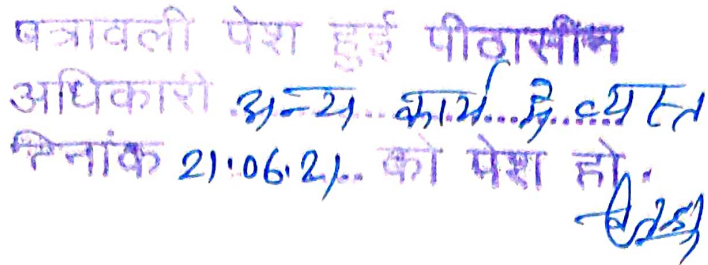 पत्रावली पेश हुई पीठासीन
अधिकारी अन्य कार्य में व्यस्त
दिनांक 21.06.21 को पेश हो.